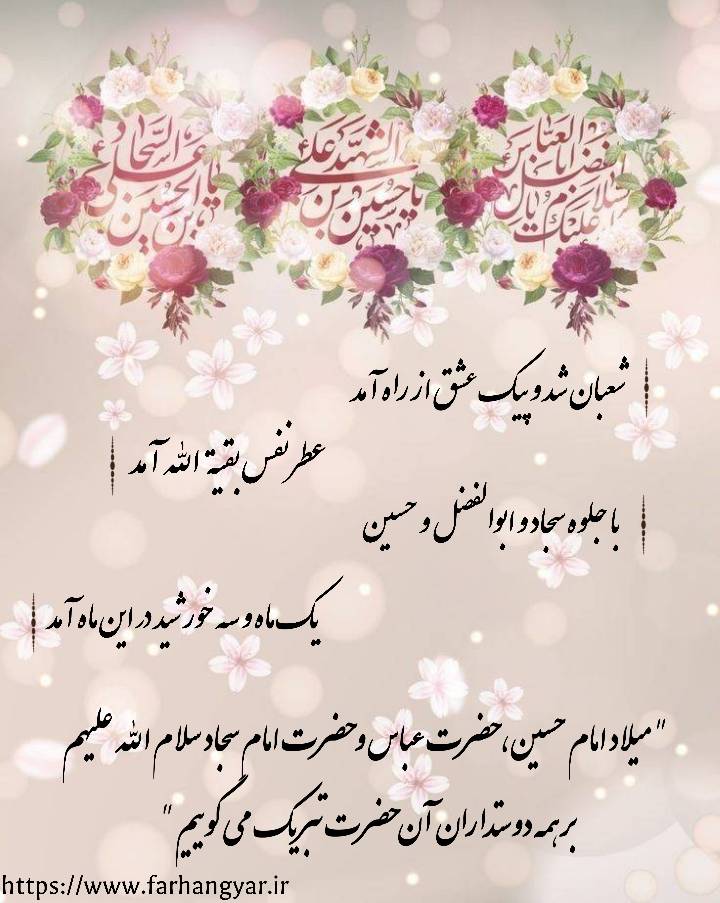 السلام علیک یا اباالفضل العباس
یا حسین بن علی الشهید
یا علی بن الحسین السجاد
شعبان شد و پیک عشق از راه آمد
عطر نفس بقیة الله آمد
با جلوه سجاد و ابوالفضل و حسین
یک ماه و سه خورشید در این ماه آمد
"میلاد امام حسین، حضرت عباس و حضرت امام سجاد سلام الله علیهم
بر همه دوستداران آن حضرت تبریک می گوییم "
https://www.farhangyar.ir